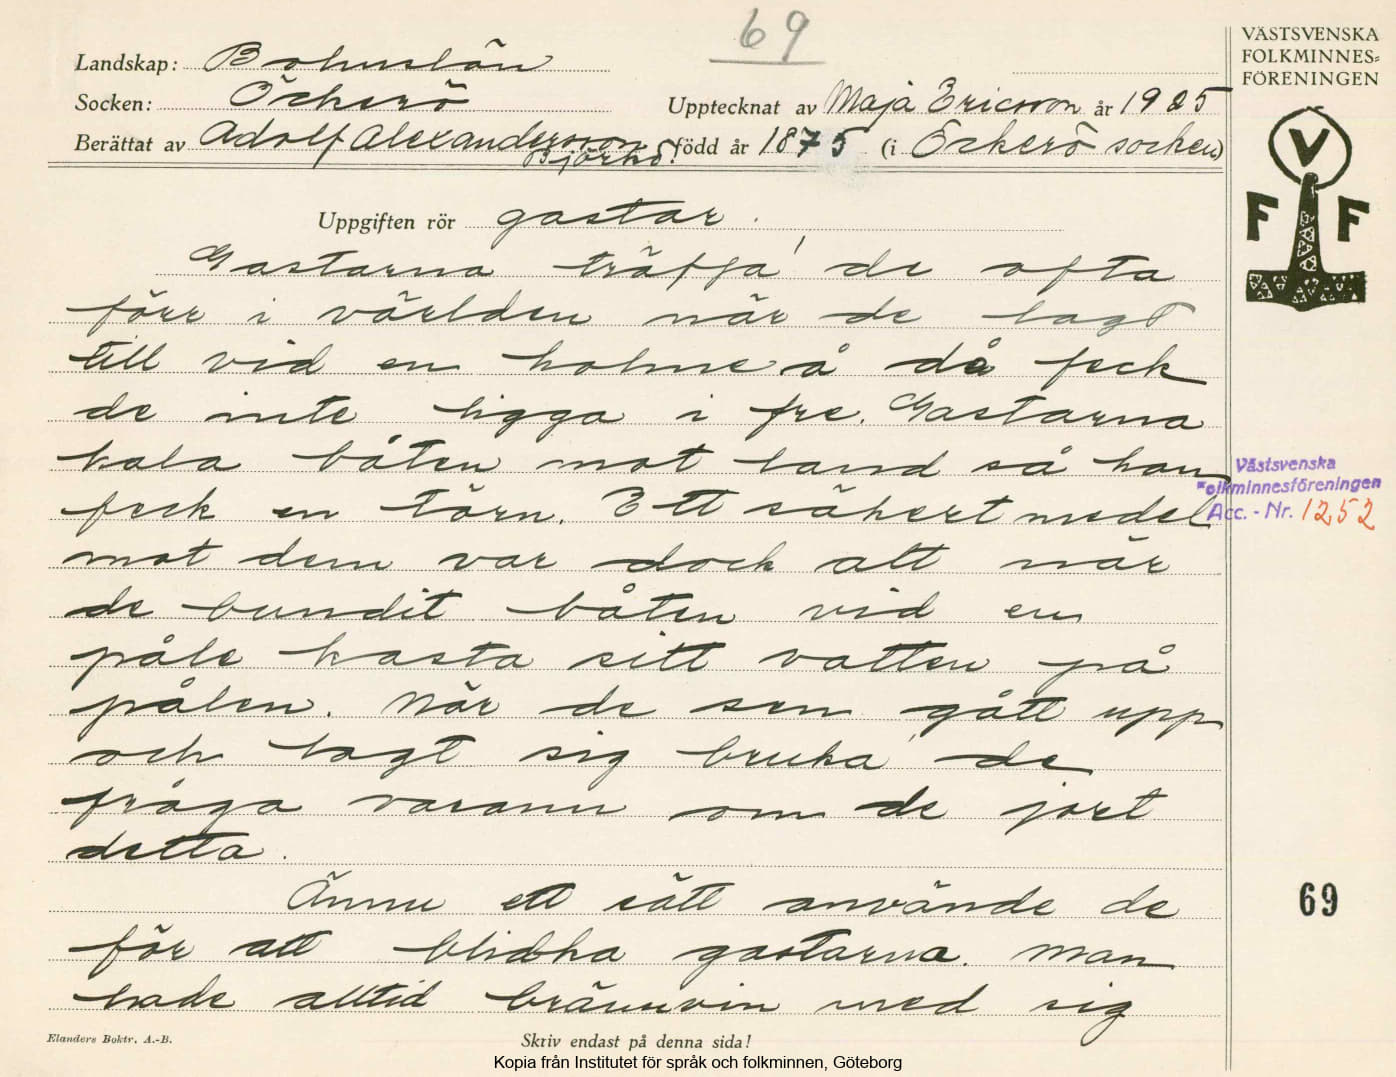 69
Landskap: Bohuslän
Socken: Öckerö
Upptecknat av Maja Ericsson år 1925
Berättat av Adolf Alexandersson
Björkö.
född år 1875 (i Öckerö socken)
VÄSTSVENSKA
FOLKMINNES=
FÖRENINGEN
V
F F
Uppgiften rör gastar.
Gastarna träffa' de ofta
förr i världen när de lagt
till vid en holme å då feck
de inte ligga i fre. Gastarna
hala båten mot land så han
feck en törn. Ett säkert medel
mot dem var dock att när
de bundit båten vid en
påle kasta sitt vatten på
pålen. När de sen gått upp
och lagt sig bruka' de
fråga varann om de jort
detta.
Ännu ett sätt använde de
för att blidka gastarna. Man
hade alltid brännvin med sig
Västsvenska
Folkminnesföreningen
Acc. - Nr. 1252
69
Elanders Boktr. A.-B.
Skriv endast på denna sida!
Kopia från Institutet för språk och folkminnen, Göteborg